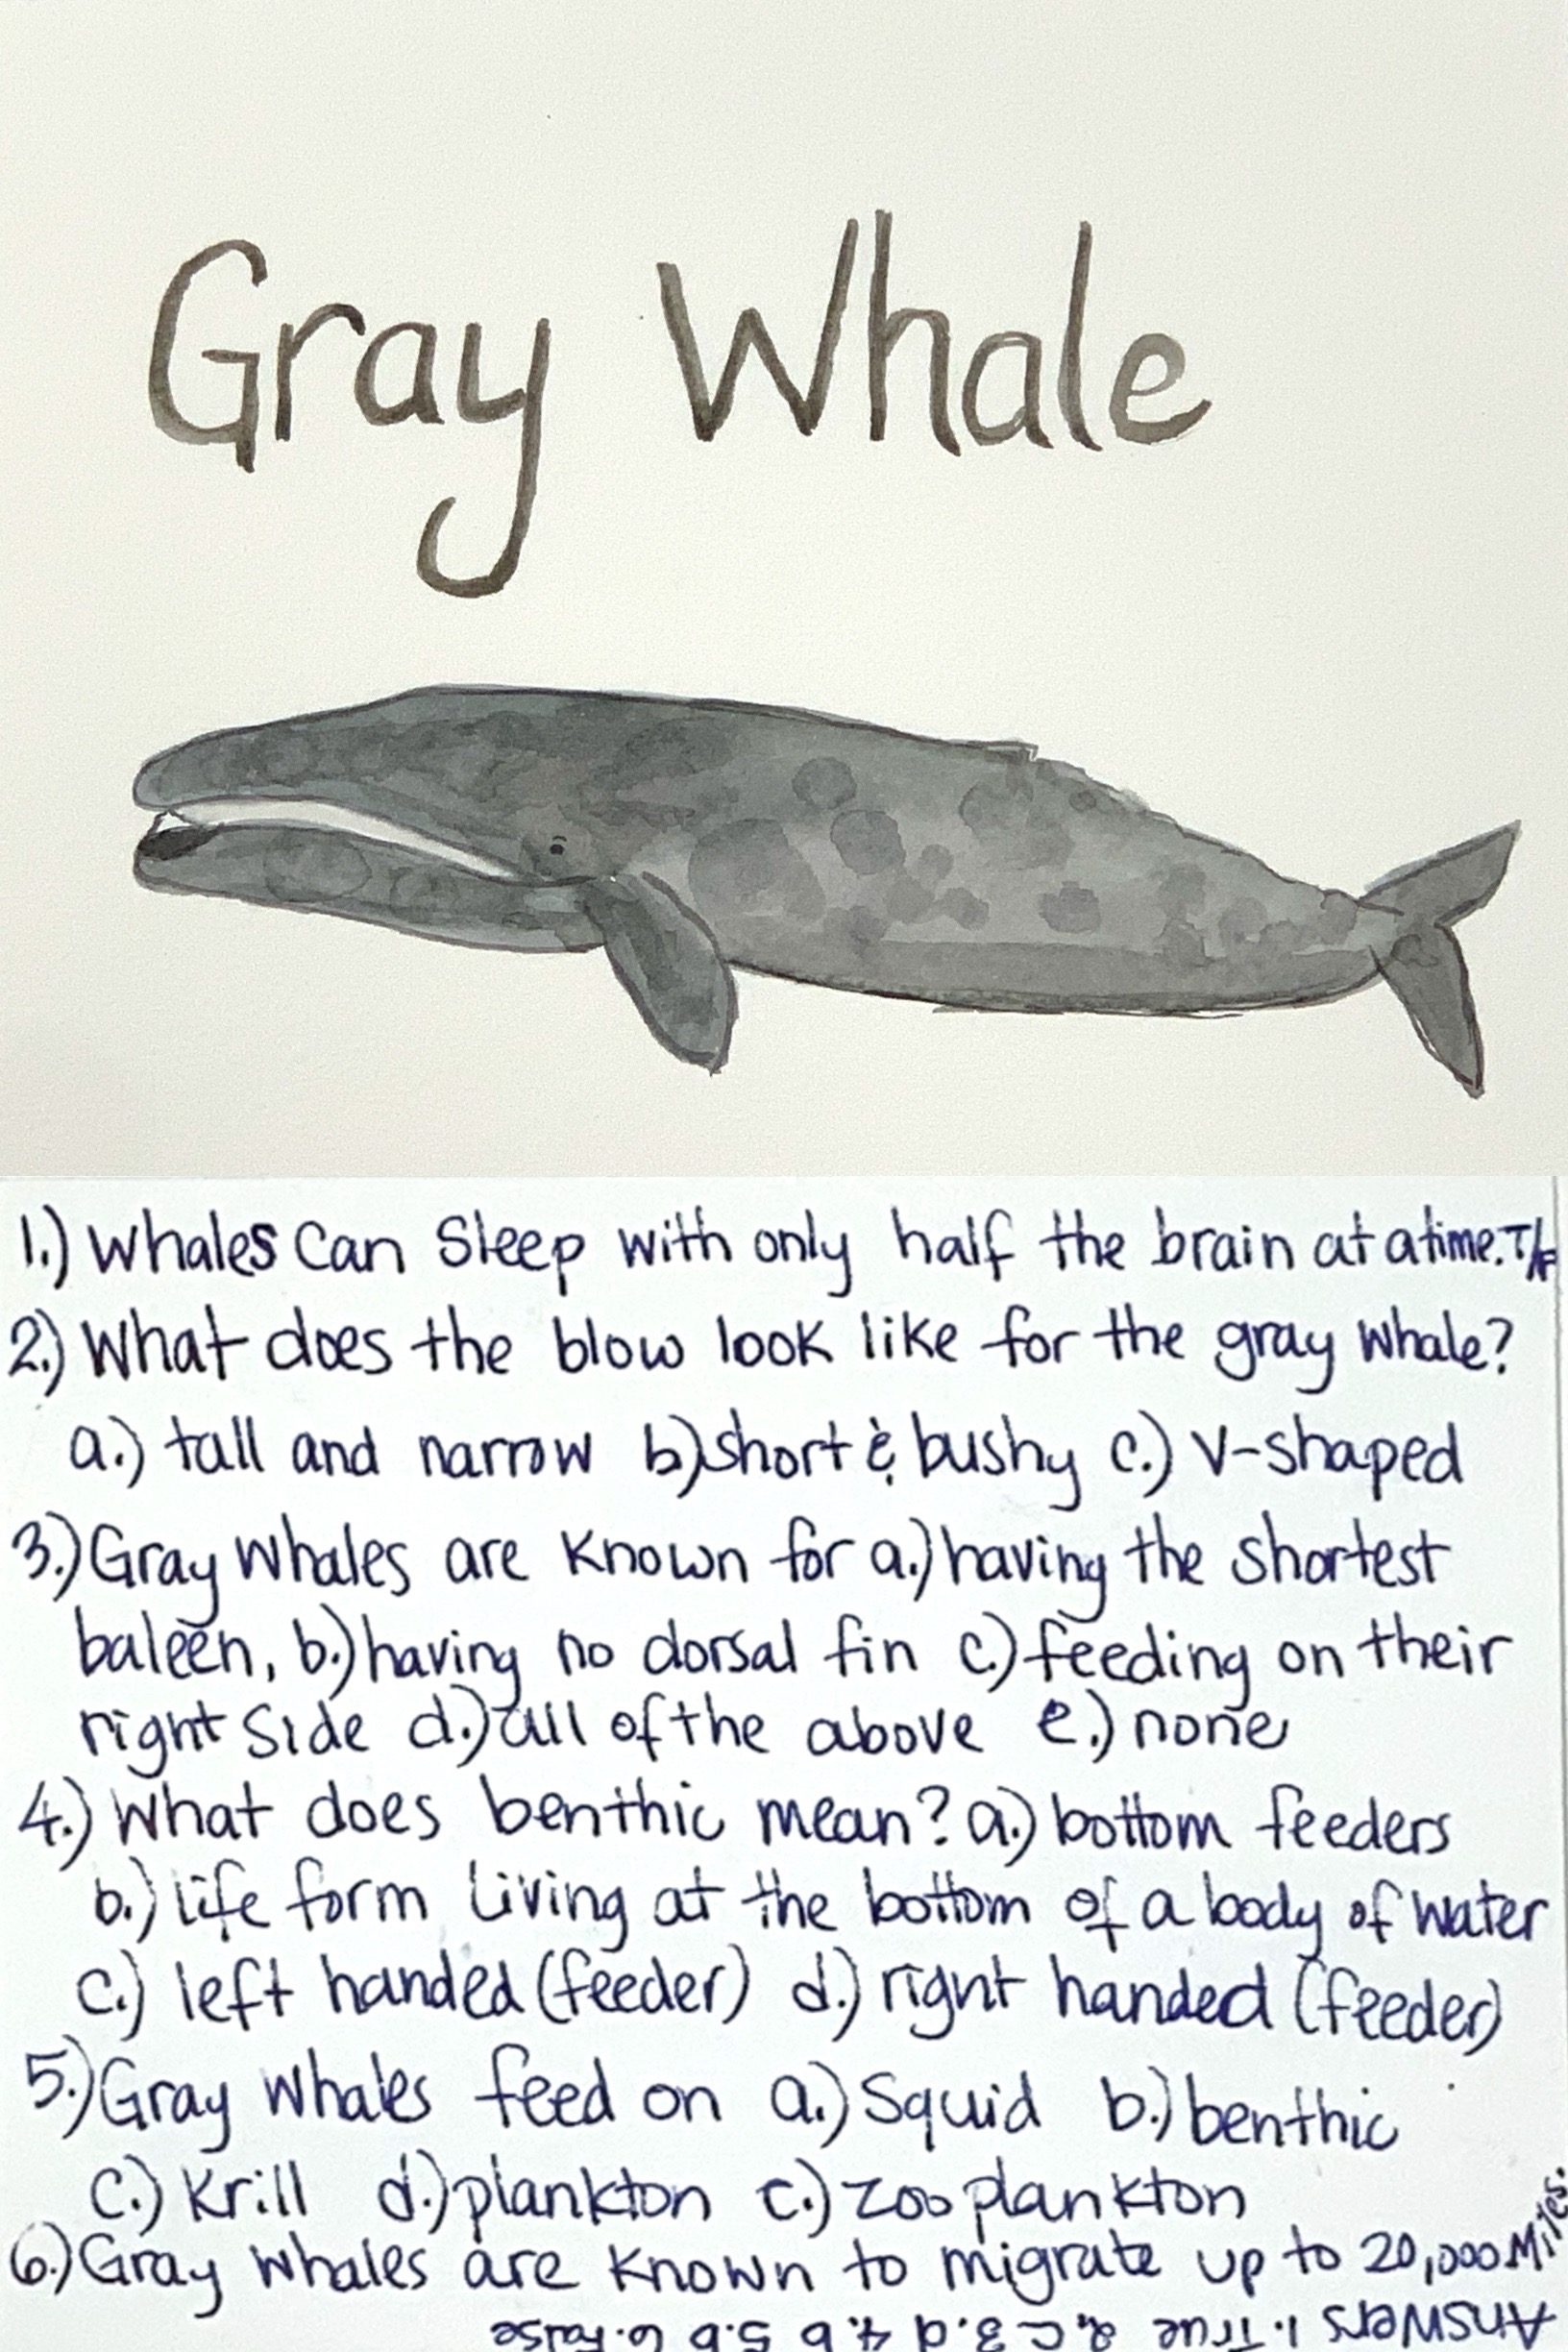 Gray Whale
1.) Whales Can Sleep with only half the brain at a time. T/F
2.) What does the blow look like for the gray whale?
a.) tall and narrow b.) short & bushy c.) V-shaped
3.) Gray Whales are known for a.) having the shortest
baleen, b.) having no dorsal fin c.) feeding on their
right side d.) all of the above e.) none
4.) What does benthic mean? a.) bottom feeders
b.) life form living at the bottom of a body of water
c.) left handed (feeder) d.) right handed (feeder)
5.) Gray Whales feed on a.) Squid b.) benthic
c.) Krill d.) plankton e.) zooplankton
6.) Gray whales are known to migrate up to 20,000 Miles.
Answers 1. True 2. C 3. d 4. b 5. b 6. False